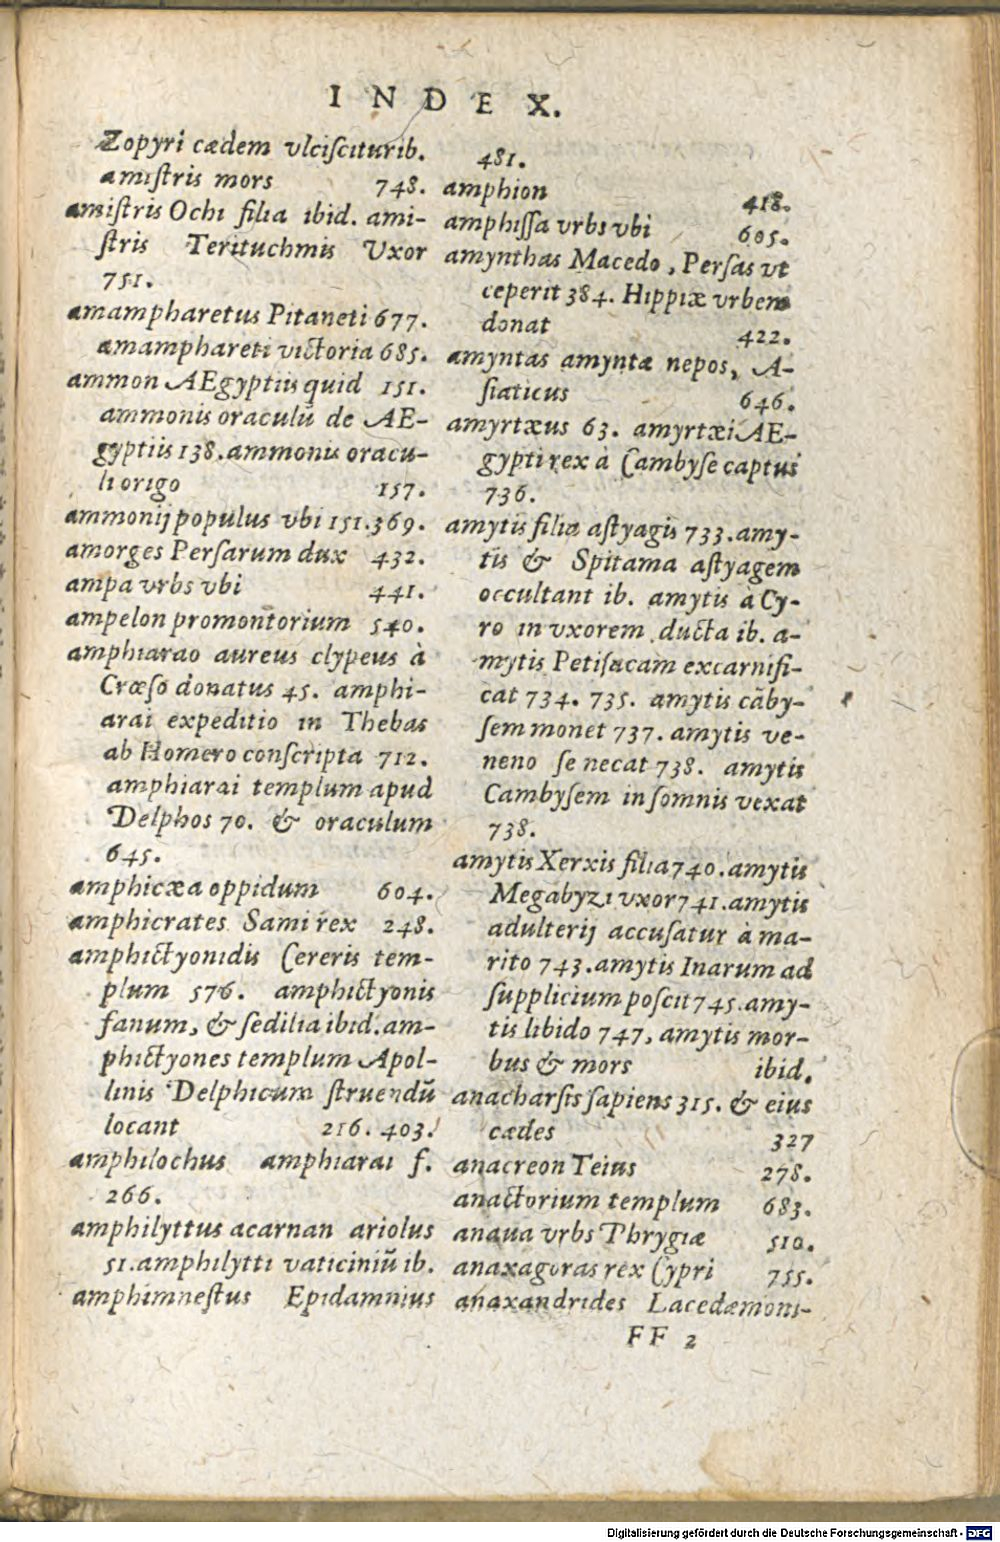 INDEX.
Zopyri cædem vlciſciturib.
amiſtris mors 748.
amiſtris Ochi filia ibid. ami-
ſtris Terituchmis Vxor
751.
amampharetus Pitaneti 677.
amamphareti victoria 685.
ammon AEgyptiis quid 151.
ammonis oraculū de AE-
gyptiis 138. ammonis oracu-
li origo 157.
ammonij populus vbi 151. 369.
amorges Perſarum dux 432.
ampa vrbs vbi 441.
ampelon promontorium 540.
amphiarao aureus clypeus à
Crœſo donatus 45. amphi-
arai expeditio in Thebas
ab Homero conſcripta 712.
amphiarai templum apud
Delphos 70. & oraculum
645.
amphicæa oppidum 604.
amphicrates Sami rex 248.
amphictyonidis Cereris tem-
plum 576. amphictyonis
fanum, & ſedilia ibid. am-
phictyones templum Apol-
linis Delphicum ſtruendū
locant 216. 403.
amphilochus amphiarai f.
266.
amphilyttus acarnan ariolus
51. amphilytti vaticiniū ib.
amphimneſtus Epidamnius
481.
amphion 418.
amphiſſa vrbs vbi 605.
amynthas Macedo, Perſas vt
ceperit 384. Hippiæ vrbem
donat 422.
amyntas amyntæ nepos, A-
ſiaticus 646.
amyrtæus 63. amyrtæi AE-
gypti rex à Cambyſe captus
736.
amytis filia aſtyagis 733. amy-
tis & Spitama aſtyagem
occultant ib. amytis à Cy-
ro in vxorem ducta ib. a-
mytis Petiſacam excarnifi-
cat 734. 735. amytis cāby-
ſem monet 737. amytis ve-
neno ſe necat 738. amytis
Cambyſem in ſomnis vexat
738.
amytis Xerxis filia 740. amytis
Megabyzi vxor 741. amytis
adulterij accuſatur à ma-
rito 743. amytis Inarum ad
ſupplicium poſcit 745. amy-
tis libido 747, amytis mor-
bus & mors ibid.
anacharſis ſapiens 315. & eius
cædes 327
anacreon Teius 278.
anactorium templum 683.
anaua vrbs Phrygiæ 510.
anaxagoras rex Cypri 755.
anaxandrides Lacedæmoni-
FF 2
Digitalisierung gefördert durch die Deutsche Forschungsgemeinschaft - DFG